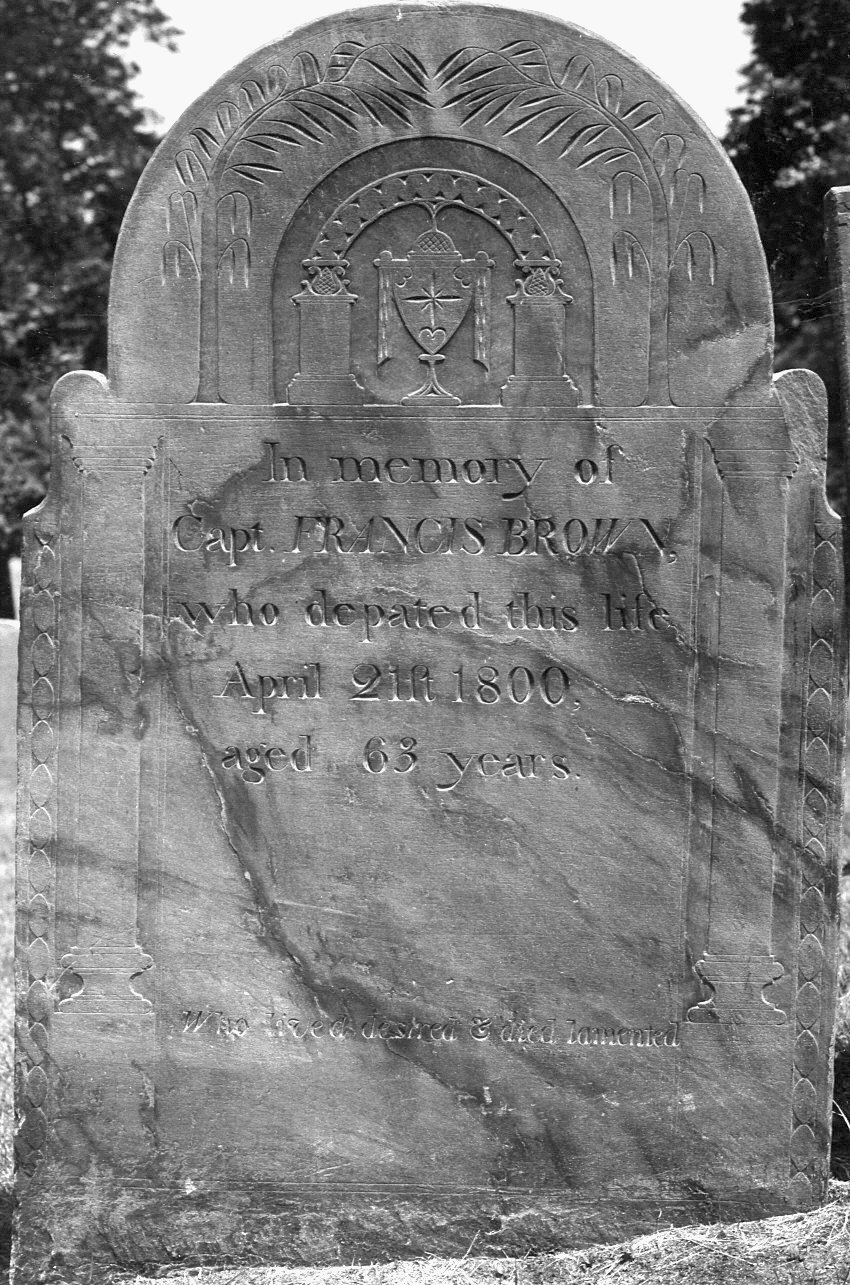 In memory of
Capt. FRANCIS BROWN,
who depated this life
April 21ſt 1800,
aged 63 years.
Who lived desired & died lamented